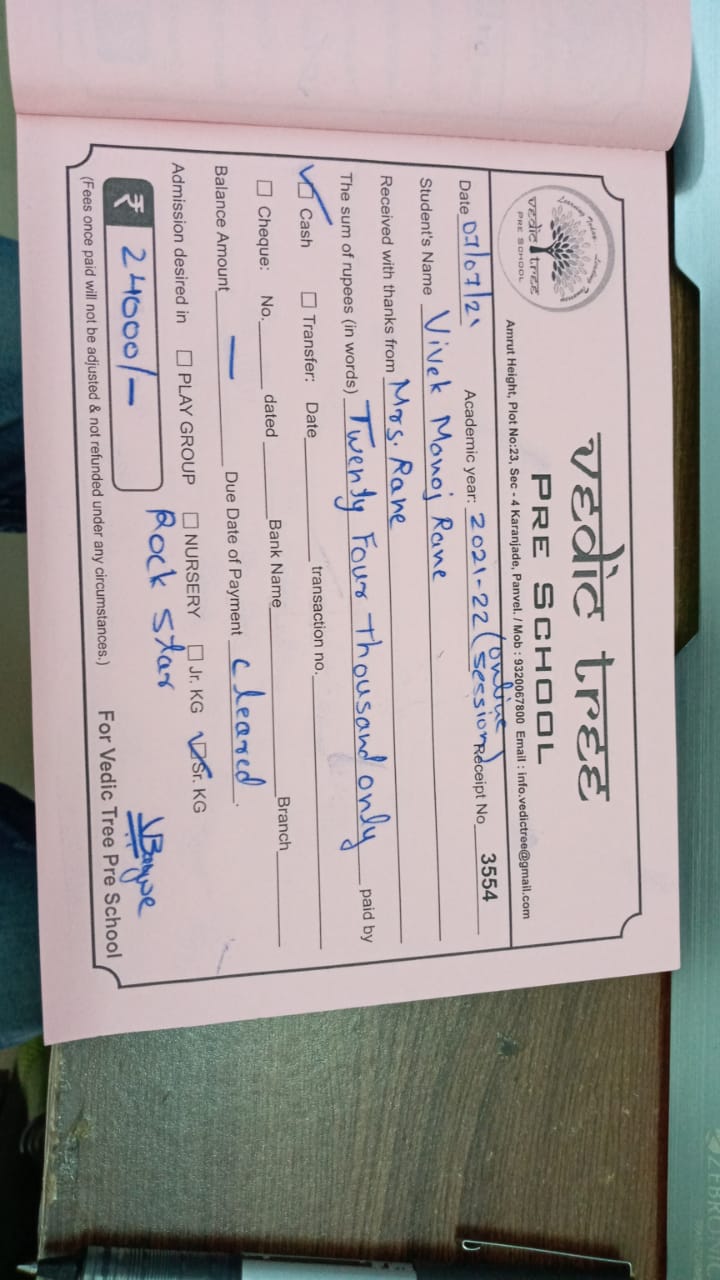 vedic tree
PRE SCHOOL
vedic tree
PRE SCHOOL
Amrut Height, Plot No:23, Sec - 4 Karanjade, Panvel. / Mob : 9320067800 Email : info.vedictree@gmail.com
Date 07/07/21 Academic year: 2021-22 (online session) Receipt No 3554
Student's Name Vivek Manoj Rane
Received with thanks from Mrs. Rane
The sum of rupees (in words) Twenty Four Thousand only paid by
☑ Cash ☐ Transfer: Date transaction no.
☐ Cheque: No. dated Bank Name Branch
Balance Amount — Due Date of Payment cleared.
Admission desired in ☐ PLAY GROUP ☐ NURSERY ☐ Jr. KG ☑ Sr. KG
Rock star
₹ 24000/-
(Fees once paid will not be adjusted & not refunded under any circumstances.) For Vedic Tree Pre School